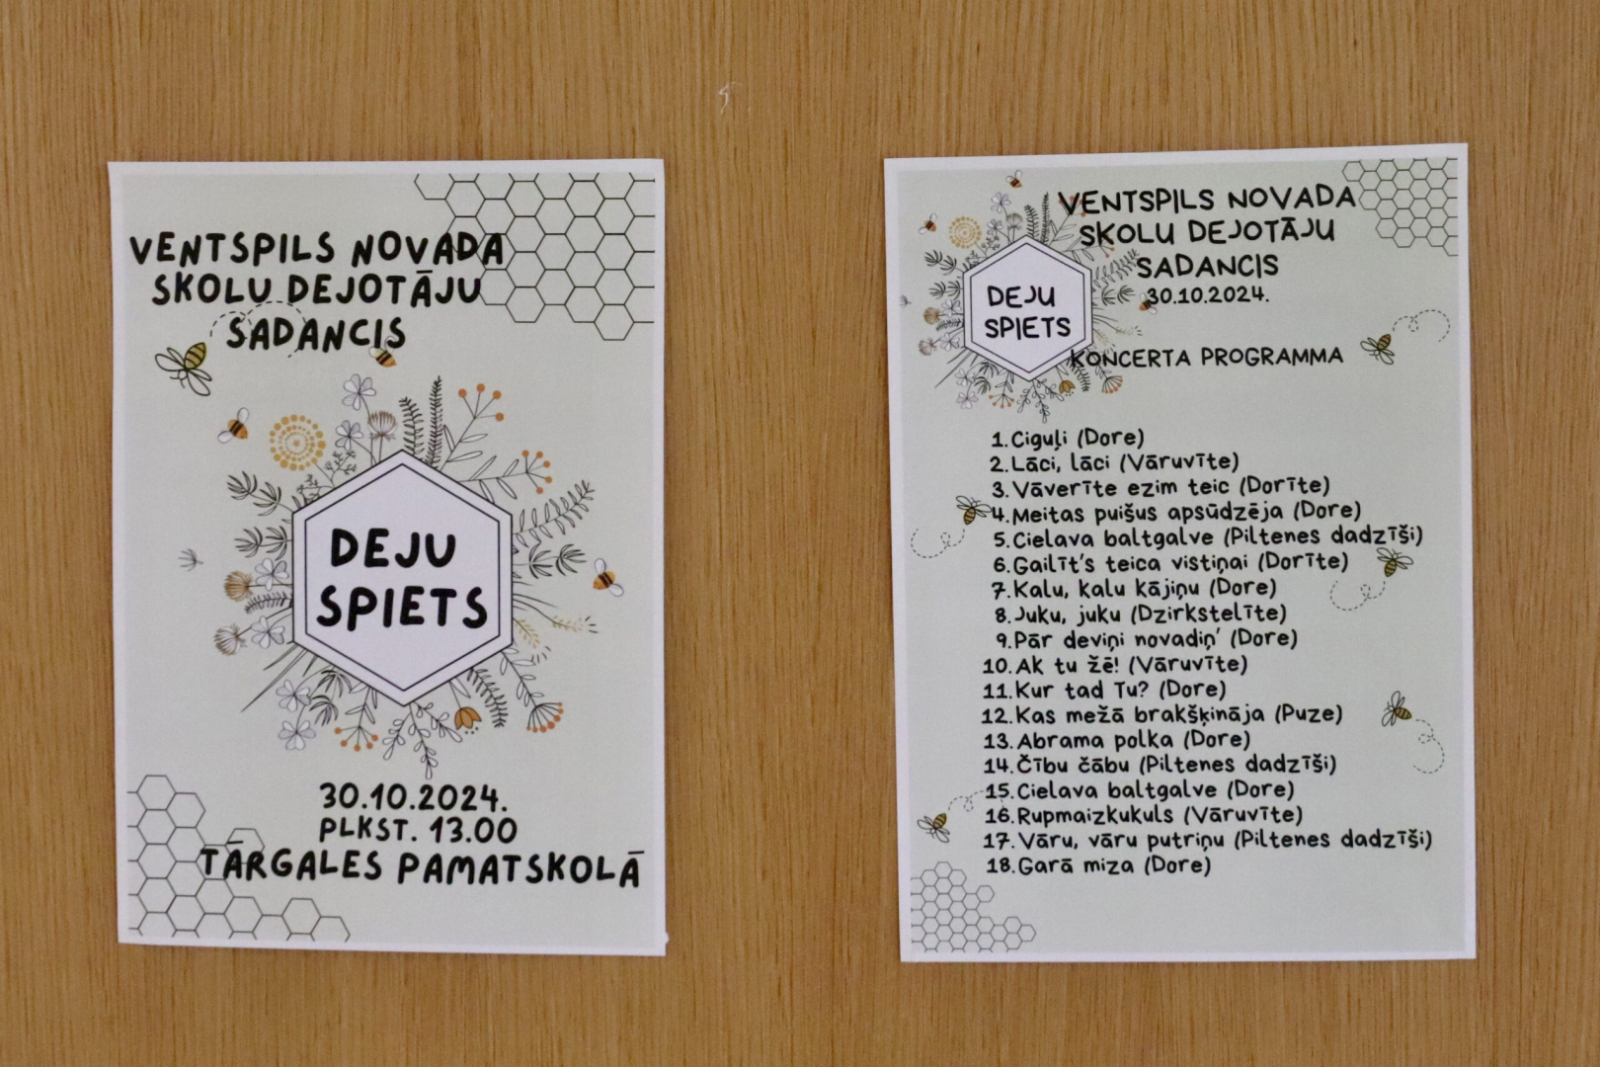 VENTSPILS NOVADA
SKOLU DEJOTĀJU
SADANCIS
DEJU
SPIETS
30.10.2024.
PLKST. 13.00
TĀRGALES PAMATSKOLĀ
VENTSPILS NOVADA
SKOLU DEJOTĀJU
SADANCIS
30.10.2024.
DEJU
SPIETS
KONCERTA PROGRAMMA
1. Ciguļi (Dore)
2. Lāci, lāci (Vāruvīte)
3. Vāverīte ezim teic (Dorīte)
4. Meitas puišus apsūdzēja (Dore)
5. Cielava baltgalve (Piltenes dadzīši)
6. Gailīt's teica vistiņai (Dorīte)
7. Kalu, kalu kājiņu (Dore)
8. Juku, juku (Dzirkstelīte)
9. Pār deviņi novadiņ' (Dore)
10. Ak tu žē! (Vāruvīte)
11. Kur tad Tu? (Dore)
12. Kas mežā brakšķināja (Puze)
13. Abrama polka (Dore)
14. Čību čābu (Piltenes dadzīši)
15. Cielava baltgalve (Dore)
16. Rupmaizkukuls (Vāruvīte)
17. Vāru, vāru putriņu (Piltenes dadzīši)
18. Garā miza (Dore)